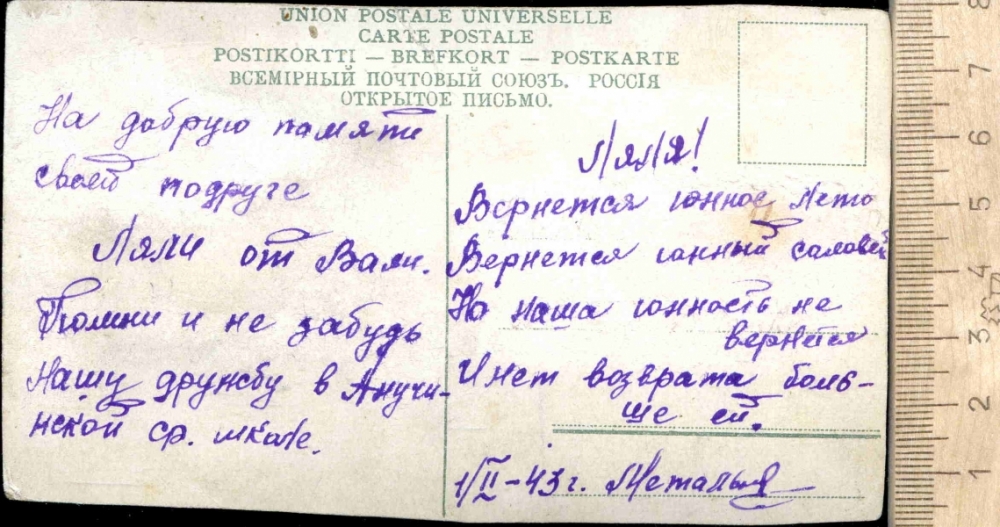 UNION POSTALE UNIVERSELLE
CARTE POSTALE
POSTIKORTTI — BREFKORT — POSTKARTE
ВСЕМІРНЫЙ ПОЧТОВЫЙ СОЮЗЪ. РОССІЯ
ОТКРЫТОЕ ПИСЬМО.
На добрую памяти
своей подруге
Ляли от Вали.
Помни и не забудь
Нашу дружбу в Анучи-
нской ср. школе.
Ляля!
Вернется юнное лето
Вернется юнный саловей
Но наша юнность не
вернется
И нет возврата боль-
ше ей.
1/II-43 г.
8
7
6
5
4
3
2
1